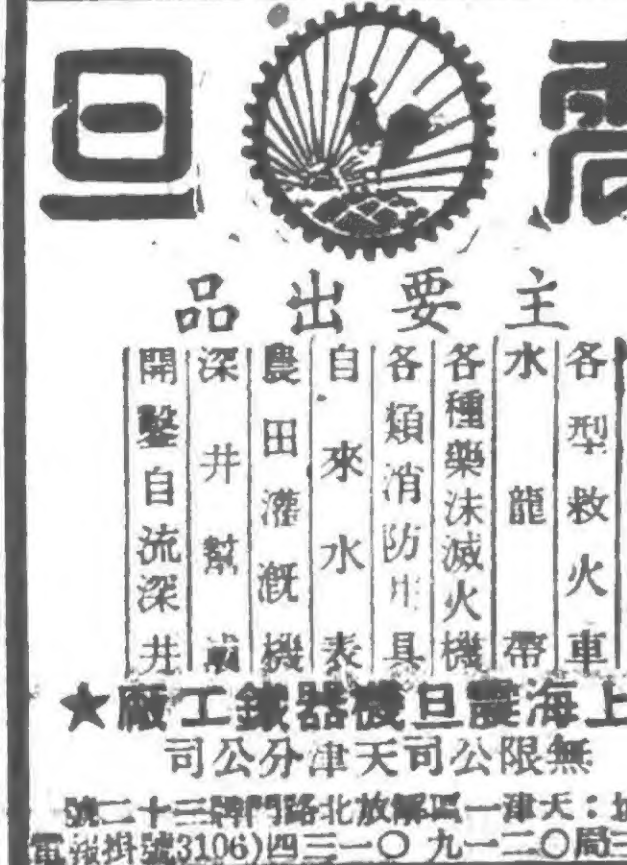 震旦
主要出品
各型救火車
水龍帶
各種藥沫滅火機
各類消防用具
自來水表
農田灌溉機
深井幫浦
開鑿自流深井
上海震旦機器鐵工廠★
無限公司天津分公司
址：天津一區解放北路門牌三十二號
三局〇二一九 〇一三四(電報掛號3106